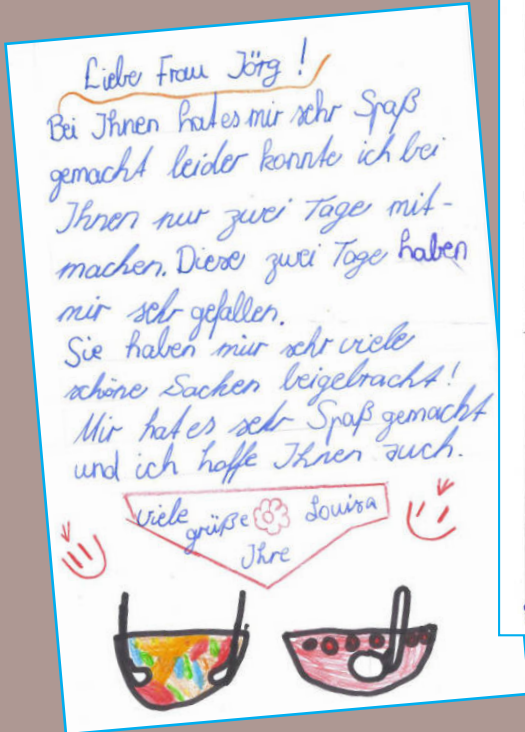 Liebe Frau Jörg!
Bei Ihnen hat es mir sehr Spaß
gemacht leider konnte ich bei
Ihnen nur zwei Tage mit-
machen. Diese zwei Tage haben
mir sehr gefallen.
Sie haben mir sehr viele
schöne Sachen beigebracht!
Mir hat es sehr Spaß gemacht
und ich hoffe Ihnen auch.
Viele grüße Louisa
Ihre